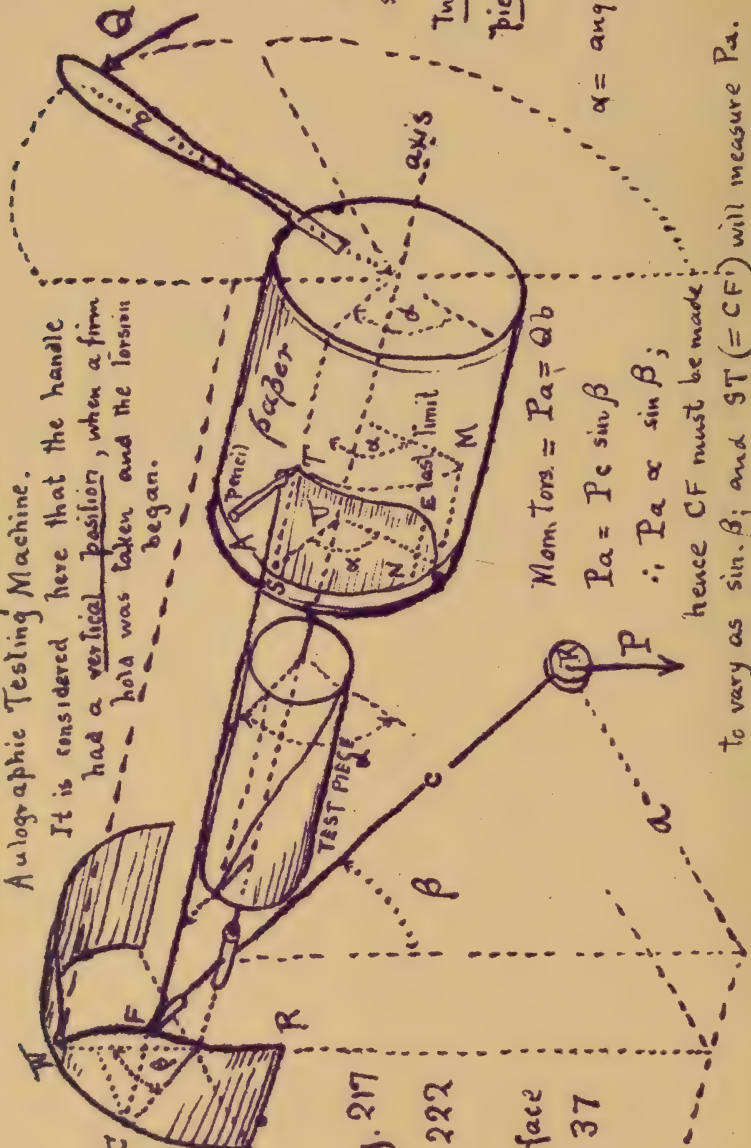 Autographic Testing Machine.
It is considered here that the handle
had a vertical position, when a firm
hold was taken and the torsion
began.
Q
b
axis
paper
pencil
A
T
S
J
α
α
α
α
N
E last limit
M
TEST PIECE
W
F
R
β
β
c
K
P
a
Mom. Tors. = Pa = Qb
Pa = Pc sin β
∴ Pa ∝ sin β;
hence CF must be made
to vary as sin. β; and ST (= CF') will measure Pa.
α = ang
pie
). 217
222
face
37